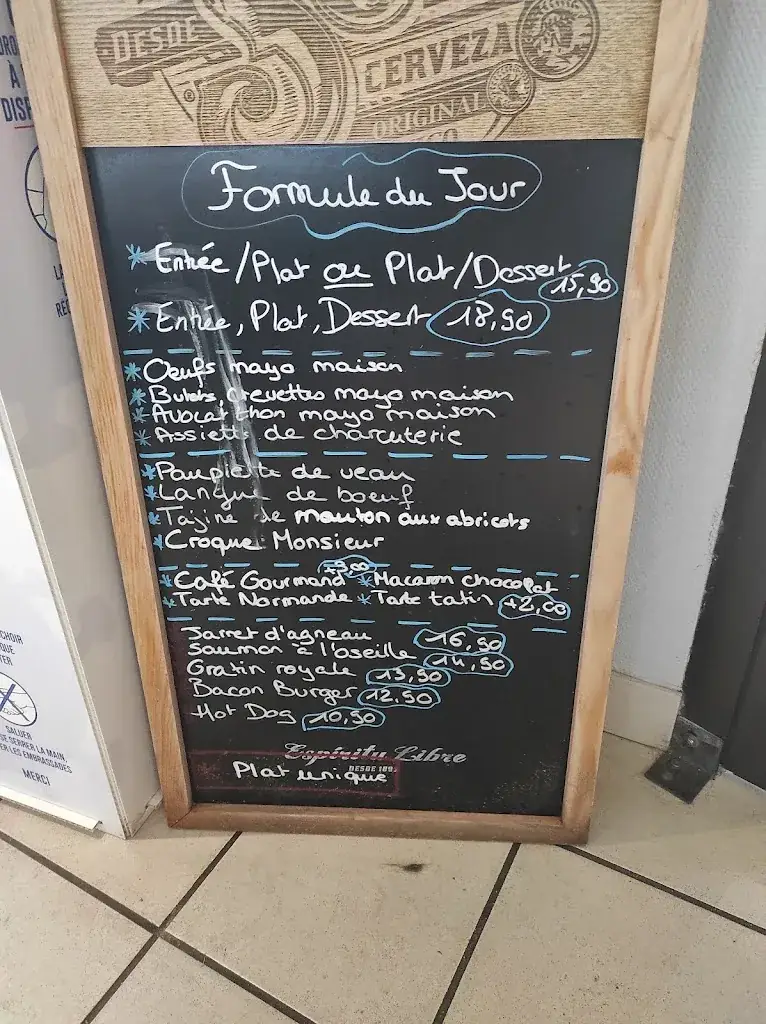 DESDE
CERVEZA
ORIGINAL
À
Formule du Jour
* Entrée/Plat ou Plat/Dessert 15,90
* Entrée, Plat, Dessert 18,90
* Oeufs mayo maison
* Bulots, crevettes mayo maison
* Avocat thon mayo maison
* Assiette de charcuterie
* Paupiette de veau
* Langue de boeuf
* Tajine de mouton aux abricots
* Croque Monsieur
* Café Gourmand +3,00 * Macaron chocolat
* Tarte Normande * Tarte tatin +2,00
Jarret d'agneau 16,90
Saumon à l'oseille 14,90
Gratin royale 13,90
Bacon Burger 12,90
Hot Dog 10,90
Espíritu Libre
DESDE
* Plat unique
SALUER
SERRER LA MAIN,
LES EMBRASSADES
MERCI